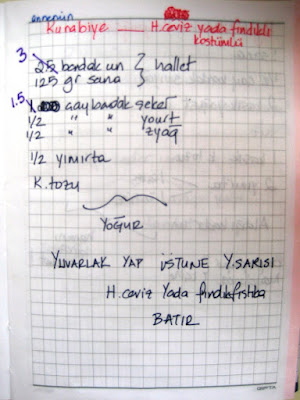 annenin
Kurabiye — H. ceviz yada fındıklı
kostümlü
3
2,5 bardak un } hallet
125 gr sana
1.5 çay bardak şeker
1/2 " " yourt
1/2 " " zyağ
1/2 yımırta
K. tozu
YOĞUR
YUVARLAK YAP ÜSTUNE Y.SARISI
H. ceviz Yada fındıkfıstıba
BATIR